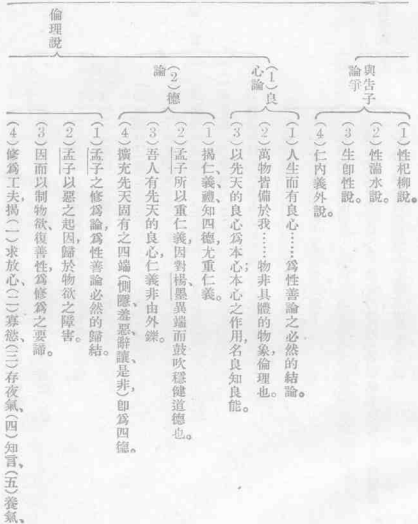 與告子
論爭
(1)性杞柳說。
(2)性湍水說。
(3)生卽性說。
(4)仁內義外說。
倫理說
(1)良
心論
(1)人生而有良心……爲性善論之必然的結論。
(2)萬物皆備於我……物非具體的物象，倫理也。
(3)以先天的良心爲本心；本心之作用，名良知良能。
(2)德
論
(1)揭仁、義、禮、知四德，尤重仁義。
(2)孟子所以重仁義，因對楊墨異端而鼓吹穩健道德也。
(3)吾人有先天的良心，仁義非由外鑠。
(4)擴充先天固有之四端(惻隱、羞惡、辭讓、是非)卽爲四德。
(1)孟子之修爲論，爲性善論必然的歸結。
(2)孟子以惡之起因，歸於物欲之障害。
(3)因而以制物欲，復善性，爲修爲之要諦。
(4)修爲工夫，揭(一)求放心、(二)寡慾、(三)存夜氣、(四)知言、(五)養氣、